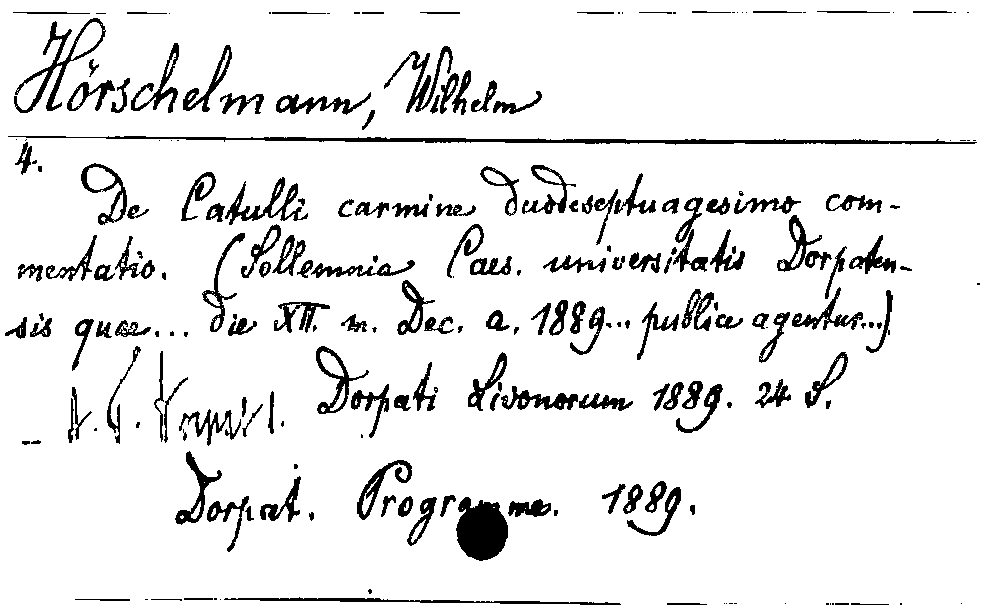 Hörschelmann, Wilhelm
4.
De Catulli carmine duodeseptuagesimo com-
mentatio. (Sollemnia Caes. universitatis Dorpaten-
sis quae... die XII. m. Dec. a. 1889... publice agentur...)
Dorpati Livonorum 1889. 24 S.
Dorpat. Programme. 1889.